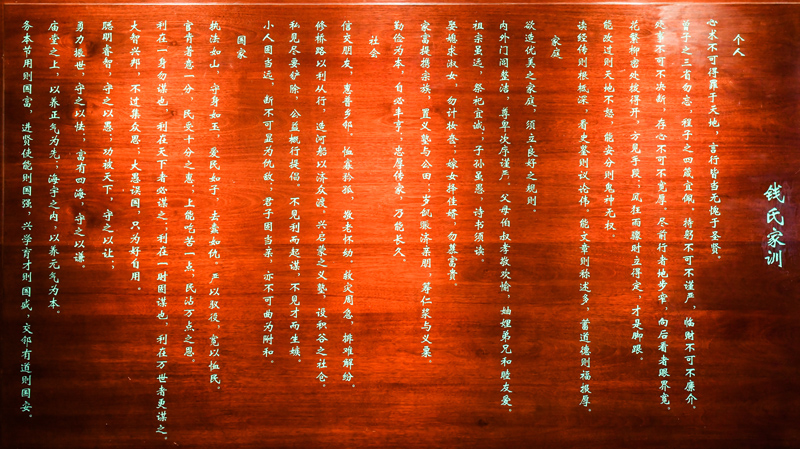 钱氏家训
个人
心术不可得罪于天地，言行皆当无愧于圣贤。
曾子之三省勿忘。程子之四箴宜佩。持躬不可不谨严。临财不可不廉介。
处事不可不决断。存心不可不宽厚。尽前行者地步窄，向后看者眼界宽。
花繁柳密处拨得开，方见手段；风狂雨骤时立得定，才是脚跟。
能改过则天地不怒，能安分则鬼神无权。
读经传则根柢深，看史鉴则议论伟。能文章则称述多，蓄道德则福报厚。
家庭
欲造优美之家庭，须立良好之规则。
内外门闾整洁，尊卑次序谨严。父母伯叔孝敬欢愉，妯娌弟兄和睦友爱。
祖宗虽远，祭祀宜诚；子孙虽愚，诗书须读。
娶媳求淑女，勿计妆奁；嫁女择佳婿，勿慕富贵。
家富提携宗族，置义塾与公田；岁饥赈济亲朋，筹仁浆与义粟。
勤俭为本，自必丰亨；忠厚传家，乃能长久。
社会
信交朋友，惠普乡邻。恤寡矜孤，敬老怀幼。救灾周急，排难解纷。
修桥路以利从行，造河船以济众渡。兴启蒙之义塾，设积谷之社仓。
私见尽要铲除，公益概行提倡。不见利而起谋，不见才而生嫉。
小人固当远，断不可显为仇敌；君子固当亲，亦不可曲为附和。
国家
执法如山，守身如玉，爱民如子，去蠹如仇。严以驭役，宽以恤民。
官肯著意一分，民受十分之惠。上能吃苦一点，民沾万点之恩。
利在一身勿谋也，利在天下者必谋之；利在一时固谋也，利在万世者更谋之。
大智兴邦，不过集众思；大愚误国，只为好自用。
聪明睿智，守之以愚；功被天下，守之以让；
勇力振世，守之以怯；富有四海，守之以谦。
庙堂之上，以养正气为先；海宇之内，以养元气为本。
务本节用则国富，进贤使能则国强，兴学育才则国盛，交邻有道则国安。